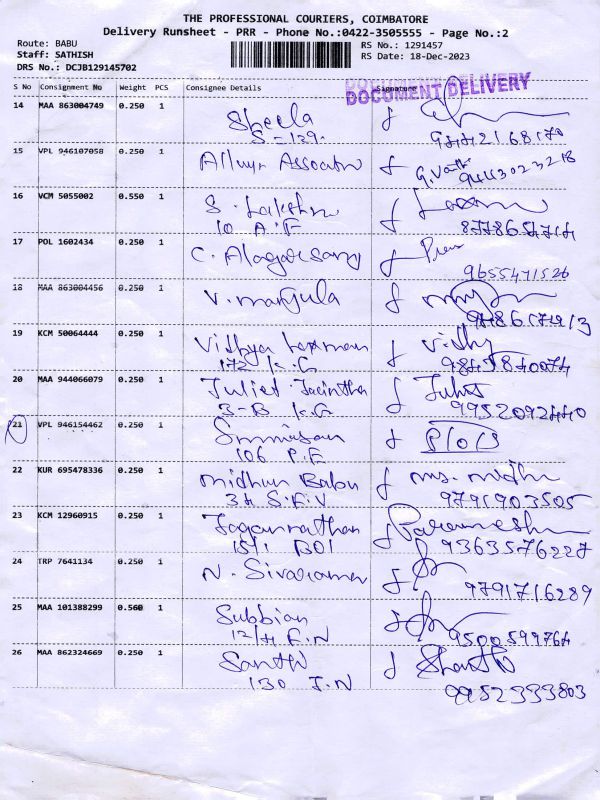 THE PROFESSIONAL COURIERS, COIMBATORE
Delivery Runsheet - PRR - Phone No.:0422-3505555 - Page No.:2
Route: BABU
Staff: SATHISH
DRS No.: DCJB129145702
RS No.: 1291457
RS Date: 18-Dec-2023
DOCUMENT DELIVERY
S No Consignment No Weight PCS Consignee Details Signature
14 MAA 863004749 0.250 1 Sheela
S-129.
15 VPL 946107058 0.250 1
9443023218
16 VCM 5055002 0.550 1 S. Lakshmi
10 A.F
17 POL 1602434 0.250 1 C. Alagarsamy
9655471526
18 MAA 863004456 0.250 1 V. manjula
19 KCM 50064444 0.250 1 Vidhya Laxman Vidhy
172 K.G 9843840074
20 MAA 944066079 0.250 1 Juliet Jacintha Juliet
3-B K.G 9952092440
21 VPL 946154462 0.250 1 Srinivasan
106 P.F
22 KUR 695478336 0.250 1 midhun Babu ms. midhu
34 S.F.V 9791903505
23 KCM 12960915 0.250 1 Jagannathan Parameesh
BOI 9363576227
24 TRP 7641134 0.250 1 N. Sivaraman
9791716289
25 MAA 101388299 0.560 1 Subbian
12/4 F.N 9500599764
26 MAA 862324669 0.250 1 Santhi Shanthi
130 J.N 9952333803